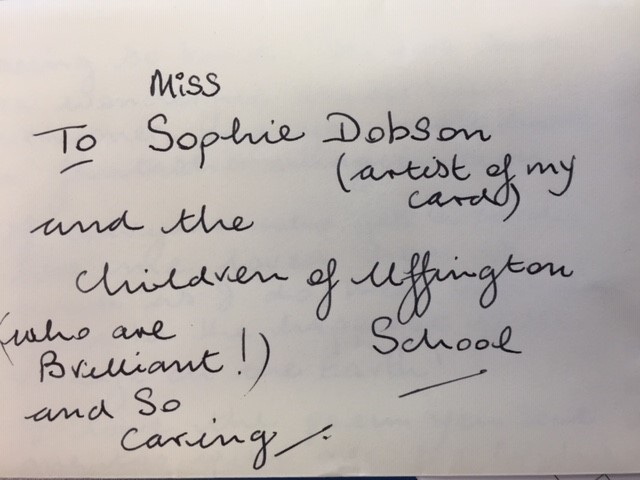 Miss
To Sophie Dobson
(artist of my
card)
and the
Children of Uffington
School
(who are
Brilliant!)
and So
caring